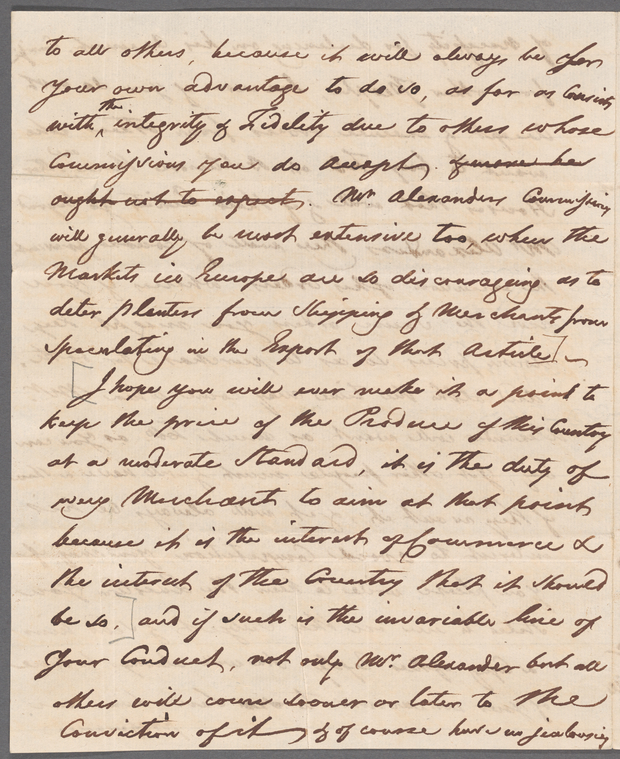 to all others, because it will always be for
Your own advantage to do so, as far as Consists
with the integrity & Fidelity due to others whose
Commissions you do accept, & more he
ought not to expect. Mr Alexanders Commissions
will generally be most extensive too, when the
Markets in Europe are so discouraging as to
deter Planters from Shipping & Merchants from
Speculating in the Export of that Article]
[I hope you will ever make it a point to
keep the price of the Produce of this Country
at a moderate Standard, it is the duty of
every Merchant to aim at that point
because it is the interest of Commerce &
the interest of the Country that it should
be so,] and if such is the invariable line of
Your Conduct, not only Mr Alexander but all
others will come sooner or later to the
Conviction of it & of course have no jealousies